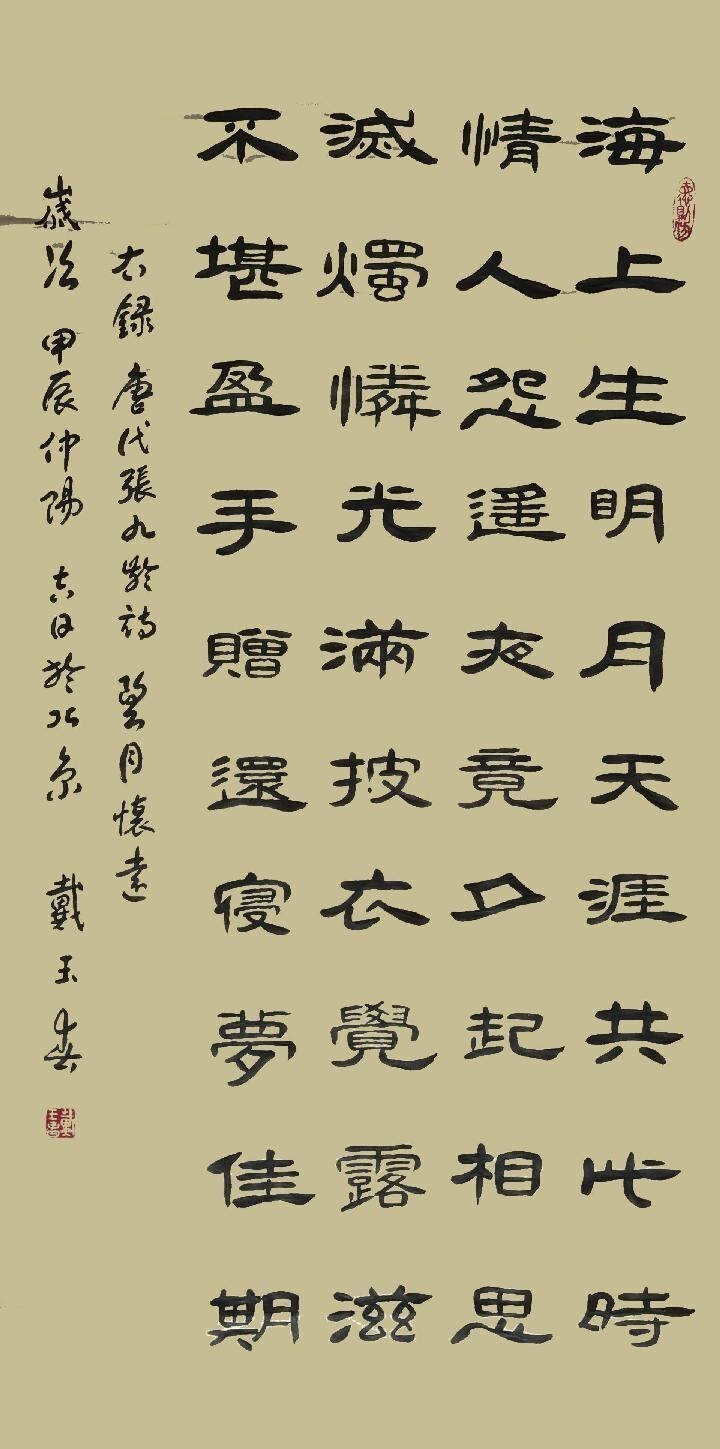 海上生明月天涯共此時
情人怨遥夜竟夕起相思
滅燭憐光滿披衣覺露滋
不堪盈手贈還寢夢佳期
右錄唐代張九齡詩望月懷遠
歲次甲辰仲陽吉日於北京 戴玉